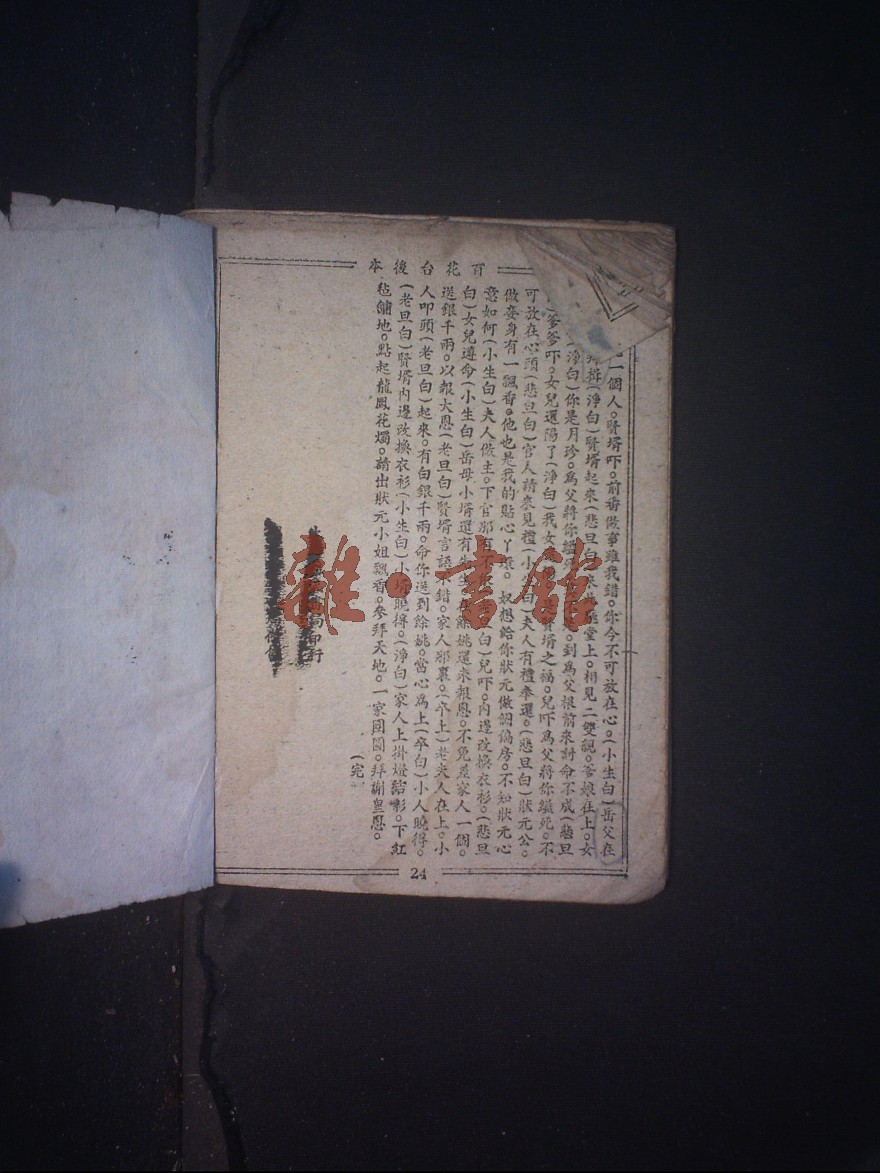 百花台後本
一個人。賢壻吓。前番做事雖我錯。你今不可放在心。(小生白)岳父在
(淨白)賢壻起來(悲旦白)來此庭堂上。相見二雙親。爹娘在上。女
(淨白)你是月珍。爲父將你到爲父根前來討命不成(悲旦
爹爹吓。女兒還陽了(淨白)我女壻之福。兒吓爲父將你縊死。不
可放在心頭(悲旦白)官人請來見禮(小白)夫人有禮奉還。(悲旦白)狀元公。
做妾身有一飄香。他也是我的貼心丫環。奴想給你狀元做偏房。不知狀元心
意如何(小生白)夫人做主。下官那有不白)兒吓。內邊改換衣衫。(悲旦
白)女兒遵命(小生白)岳母小壻還有餘姚還未報恩。不免差家人一個。
送銀千兩。以報大恩(老旦白)賢壻言語不錯。家人那裏。(卒上)老夫人在上。小
人叩頭(老旦白)起來。有白銀千兩。命你送到餘姚。當心爲上(卒白)小人曉得。
(老旦白)賢壻內邊改換衣衫(小生白)小壻曉得。(淨白)家人上掛燈結彩。下紅
毡舖地。點起龍鳳花燭。請出狀元小姐飄香。參拜天地。一家團圓。拜謝皇恩。
(完
局印行
24
雜·書館